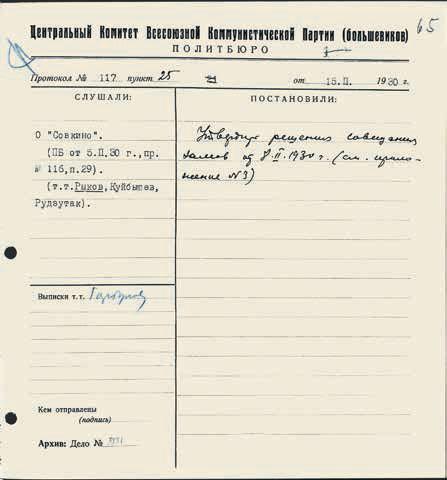 65
Центральный Комитет Всесоюзной Коммунистической Партии (большевиков)
ПОЛИТБЮРО
Протокол № 117 пункт 25 от 15.II. 1930 г.
СЛУШАЛИ:
ПОСТАНОВИЛИ:
О "Совкино".
(ПБ от 5.II.30 г., пр.
№ 116, п.29).
(т.т.Рыков, Куйбышев,
Рудзутак).
Утвердить решения совещания
замов от 8.II.1930 г. (см. прило-
жение №3)
Выписки т.т.
Кем отправлены
(подпись)
Архив: Дело №